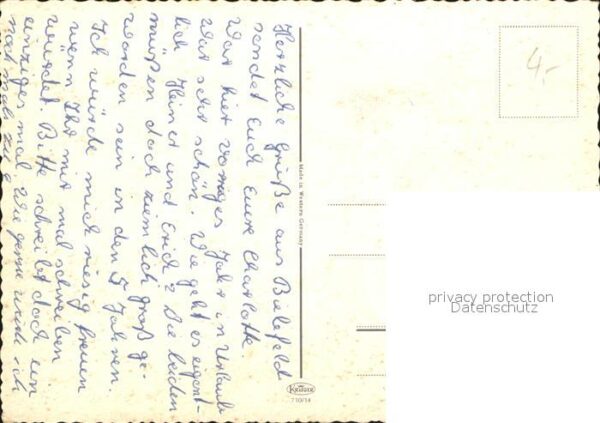 Herzliche Grüße aus Bielefeld
sendet Euch Eure Charlotte
War hier voriges Jahr in Urlaub
War sehr schön. Wie geht es eigent-
lich Heiner und Erich? Die beiden
müßen doch ziemlich groß ge-
worden sein in den 5 Jahren.
Ich würde mich riesig freuen
wenn Ihr mir mal schreiben
würdet. Bitte schreibt doch ein
einziges mal. Wie gerne würde ich
noch mals zu
4,-
Made in Western Germany
Krüger
710/14
privacy protection
Datenschutz